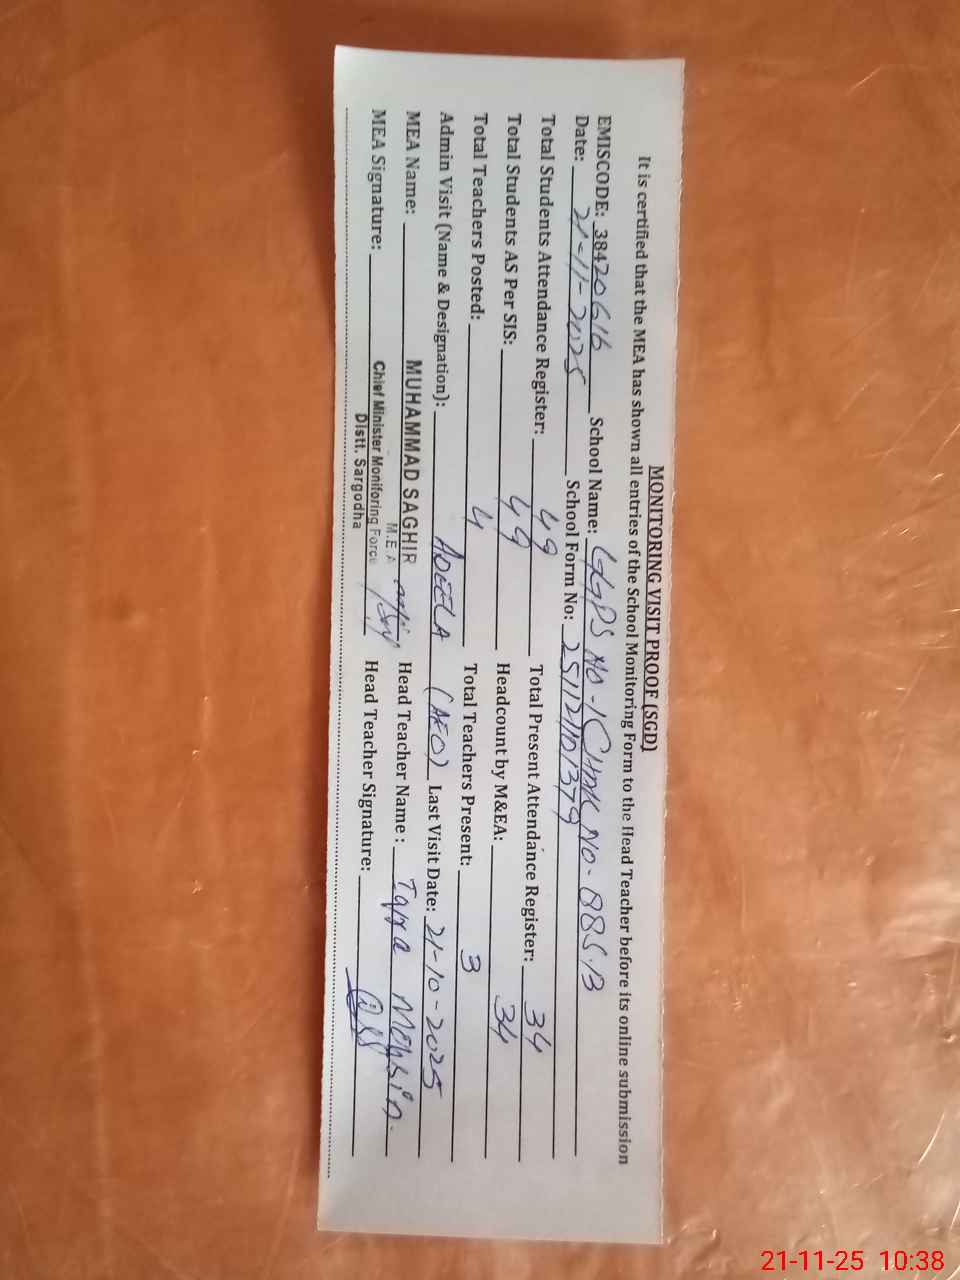 MONITORING VISIT PROOF (SGD)
It is certified that the MEA has shown all entries of the School Monitoring Form to the Head Teacher before its online submission
EMISCODE: 38420616 School Name: GGPS NO-1 CHAK NO-88S.B
Date: 21-11-2025 School Form No: 251121101379
Total Students Attendance Register: 49 Total Present Attendance Register: 34
Total Students AS Per SIS: 49 Headcount by M&EA: 34
Total Teachers Posted: 4 Total Teachers Present: 3
Admin Visit (Name & Designation): ADEELA (AEO) Last Visit Date: 21-10-2025
MEA Name: MUHAMMAD SAGHIR Head Teacher Name : Mohsin
M.E.A
MEA Signature: Chief Minister Monitoring Force Head Teacher Signature:
Distt. Sargodha
21-11-25 10:38